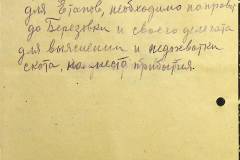 для Етапов, необходимо направ.
до Березовки и своего делегата
для выяснения и недохватки
скота, на место прибытия.